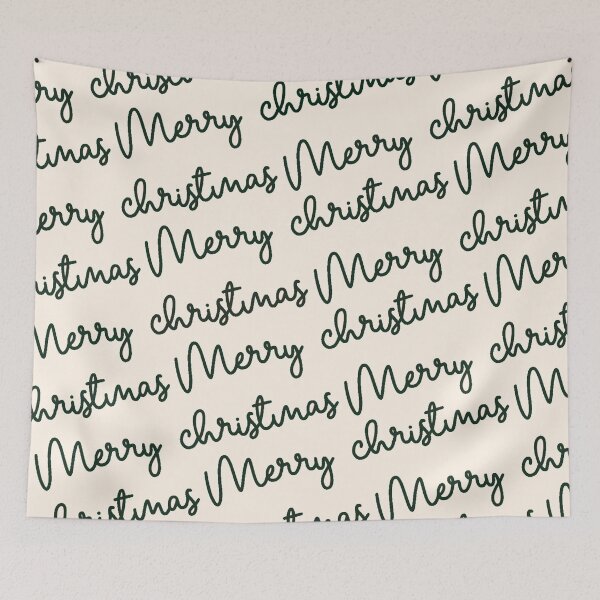 rry christ
tmas Merry christmas
erry christmas Merry christma
istmas Merry christmas Merry
Merry christmas Merry christm
hristmas Merry christmas Mer
Merry christmas Merry christ
christmas Merry christmas M
Merry chr